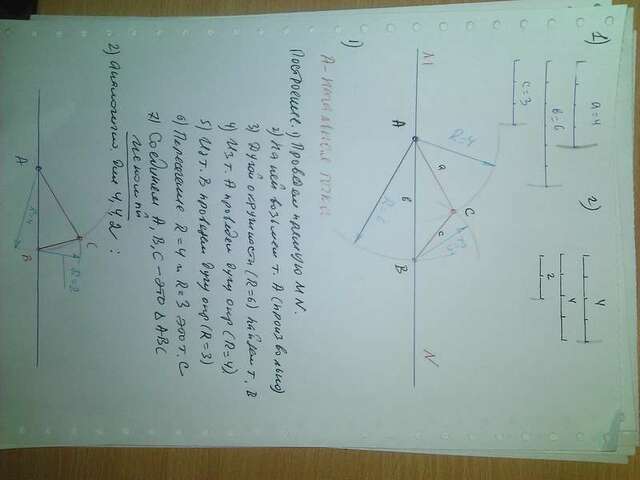 1)
a=4
в=6
c=3
2)
4
4
2
1)
M
A
R=4
a
в
C
c
B
N
A - начальная точка
Построение: 1) Проведем прямую MN.
2) На ней возьмем т. A (произвольно)
3) Дугой окружности (R=6) найдем т. B
4) Из т. A проведем дугу окр (R=4)
5) Из т. B проведем дугу окр (R=3)
6) Пересечение R=4 и R=3 это т. C
7) Соединяем A, B, C – это Δ ABC
искомый
2) Аналогично для 4, 4, 2 :
A
R=4
C
B
R=2